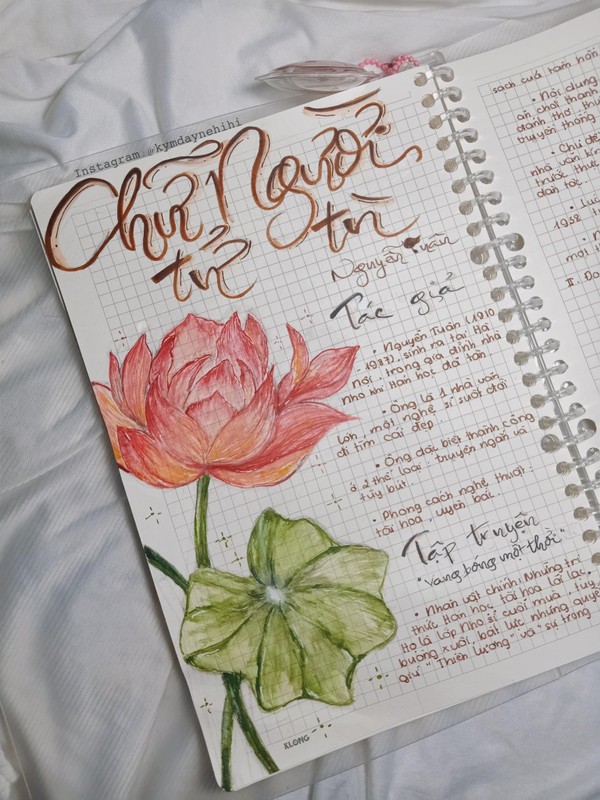 Instagram: @kymdaynehihi
Chữ Người
tử tù
Nguyễn Tuân
Tác giả
• Nguyễn Tuân (1910
- 1987), sinh ra tại Hà
Nội, trong gia đình nhà
nho khi Hán học đã tàn
• Ông là 1 nhà văn
lớn, một nghệ sĩ suốt đời
đi tìm cái đẹp
• Ông đặc biệt thành công
ở 2 thể loại: truyện ngắn và
tùy bút.
• Phong cách nghệ thuật:
tài hoa, uyên bác.
Tập truyện
"Vang bóng một thời"
• Nhân vật chính: Những trí
thức Hán học tài hoa lỡ lạc,
Họ là lớp Nho sĩ cuối mùa, tuy
buông xuôi, bất lực nhưng quyết
giữ "Thiên Lương" và "sự trong
KLONG
sạch của tâm hồn
• Nội dung
ăn chơi thanh
đánh thơ, thư
truyền thống
• Chủ đề
nhà văn kín
trước thực
dân tộc.
• Lúc
1938
một
II. Đo